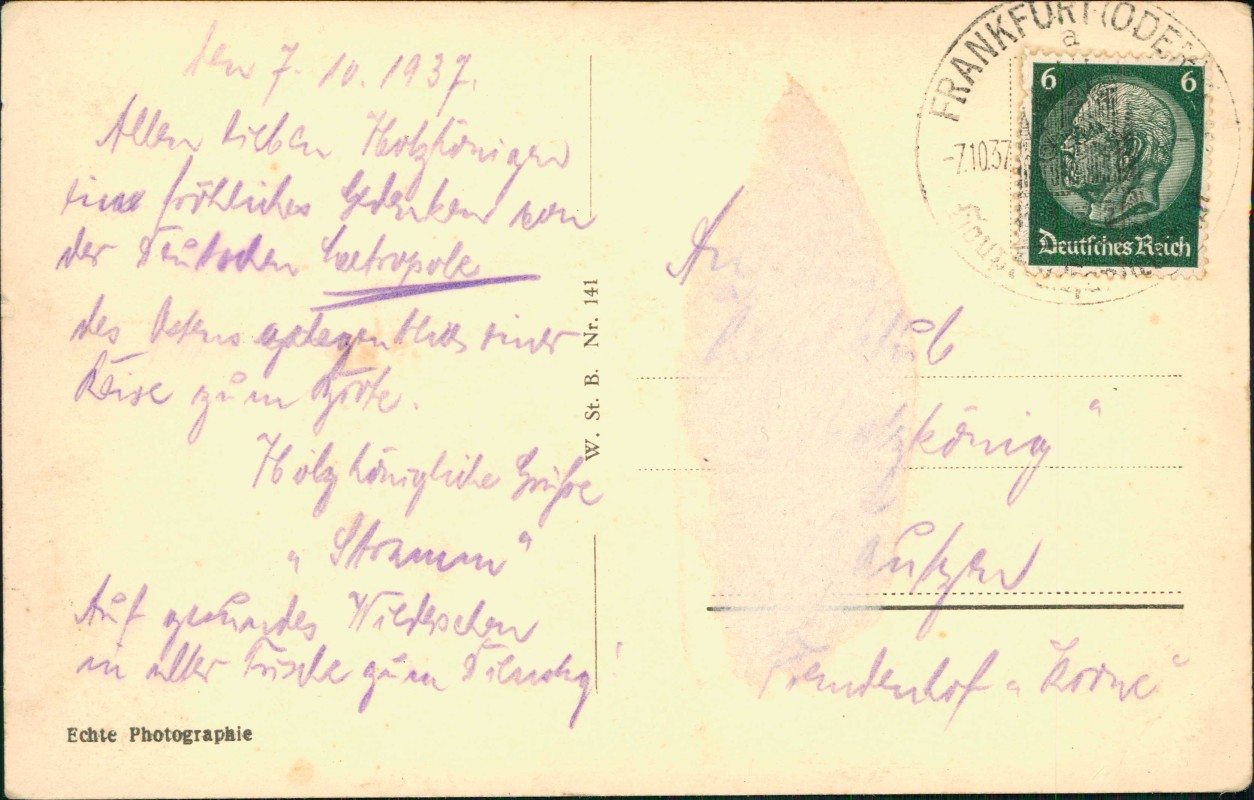 den 7.10.1937.
Allen lieben Holzkönigen
eine fröhliches Gedenken von
der Deutschen Metropole
des Ostens gelegentlich einer
Reise zum
Holzkönigliche Grüße
"Stramm"
Auf gesundes Wiedersehen
in alter Frische zum Dienstag!
Echte Photographie
W. St. B. Nr. 141
FRANKFURT (ODER)
a
-7.10.37
6 6
Deutsches Reich
An
Klub
könig"
Bautzen
Fremdenhof "Krone"